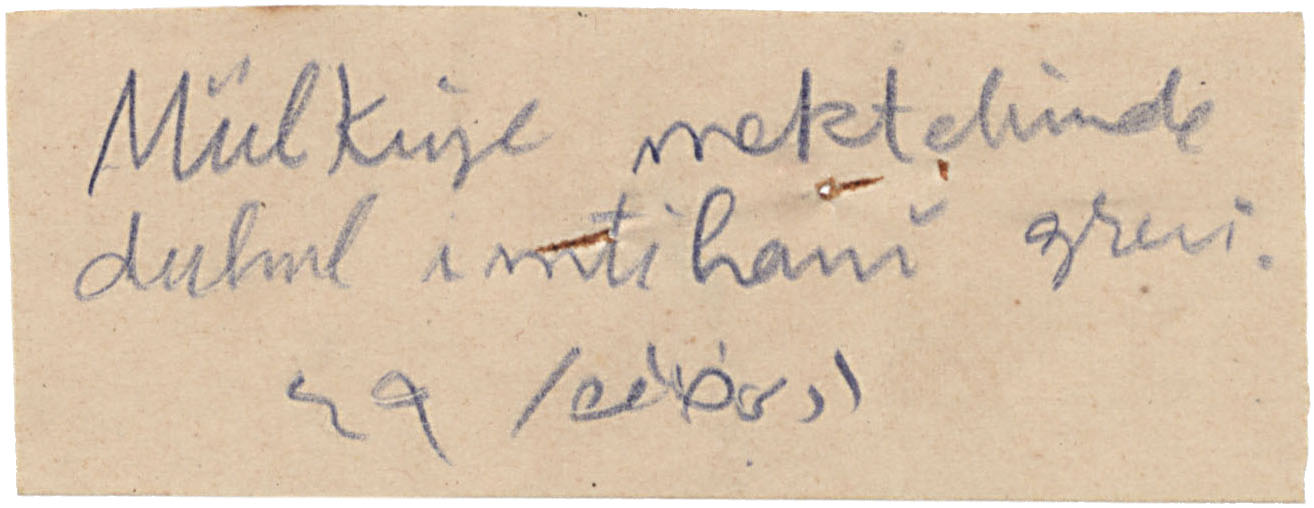 Mülkiye mektebinde
duhul imtihanı grevi.